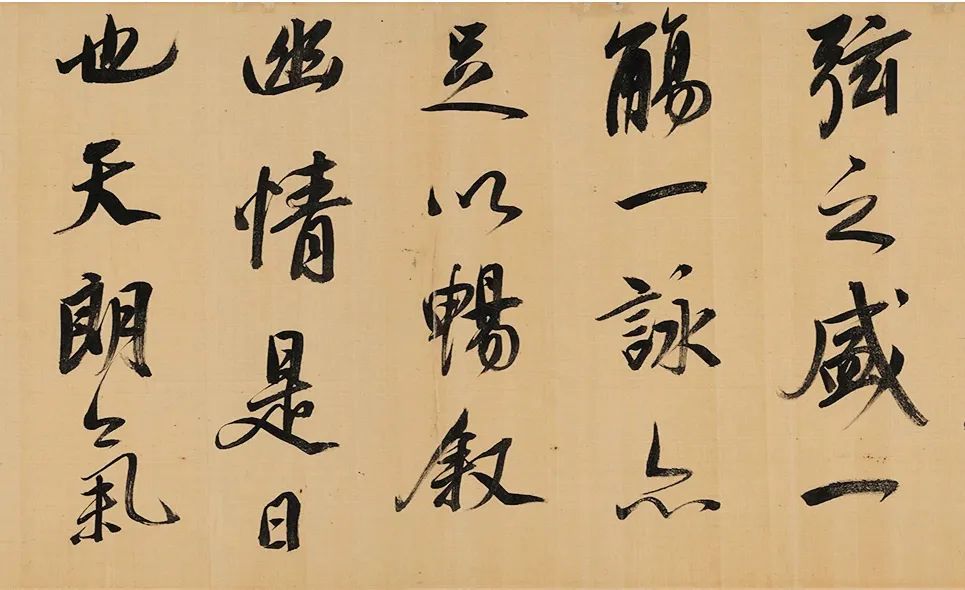 弦之盛一
觴一詠亦
足以暢叙
幽情是日
也天朗氣